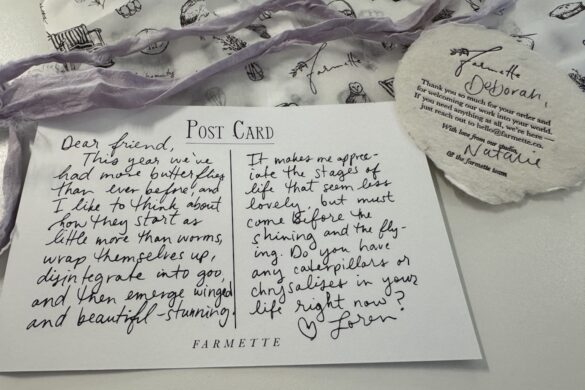 POST CARD
Dear friend,
This year we've
had more butterflies
than ever before, and
I like to think about
how they start as
little more than worms,
wrap themselves up,
disintegrate into goo,
and then emerge winged
and beautiful-stunning.
It makes me appre-
ciate the stages of
life that seem less
lovely, but must
come before the
shining and the fly-
ing. Do you have
any caterpillars or
chrysalises in your
life right now?
♡ Loren
FARMETTE
farmette
farmette
Deborah,
Thank you so much for your order and
for welcoming our work into your world.
If you need anything at all, we're here —
just reach out to hello@farmette.co.
With love from our studio,
Natalie
& the farmette team